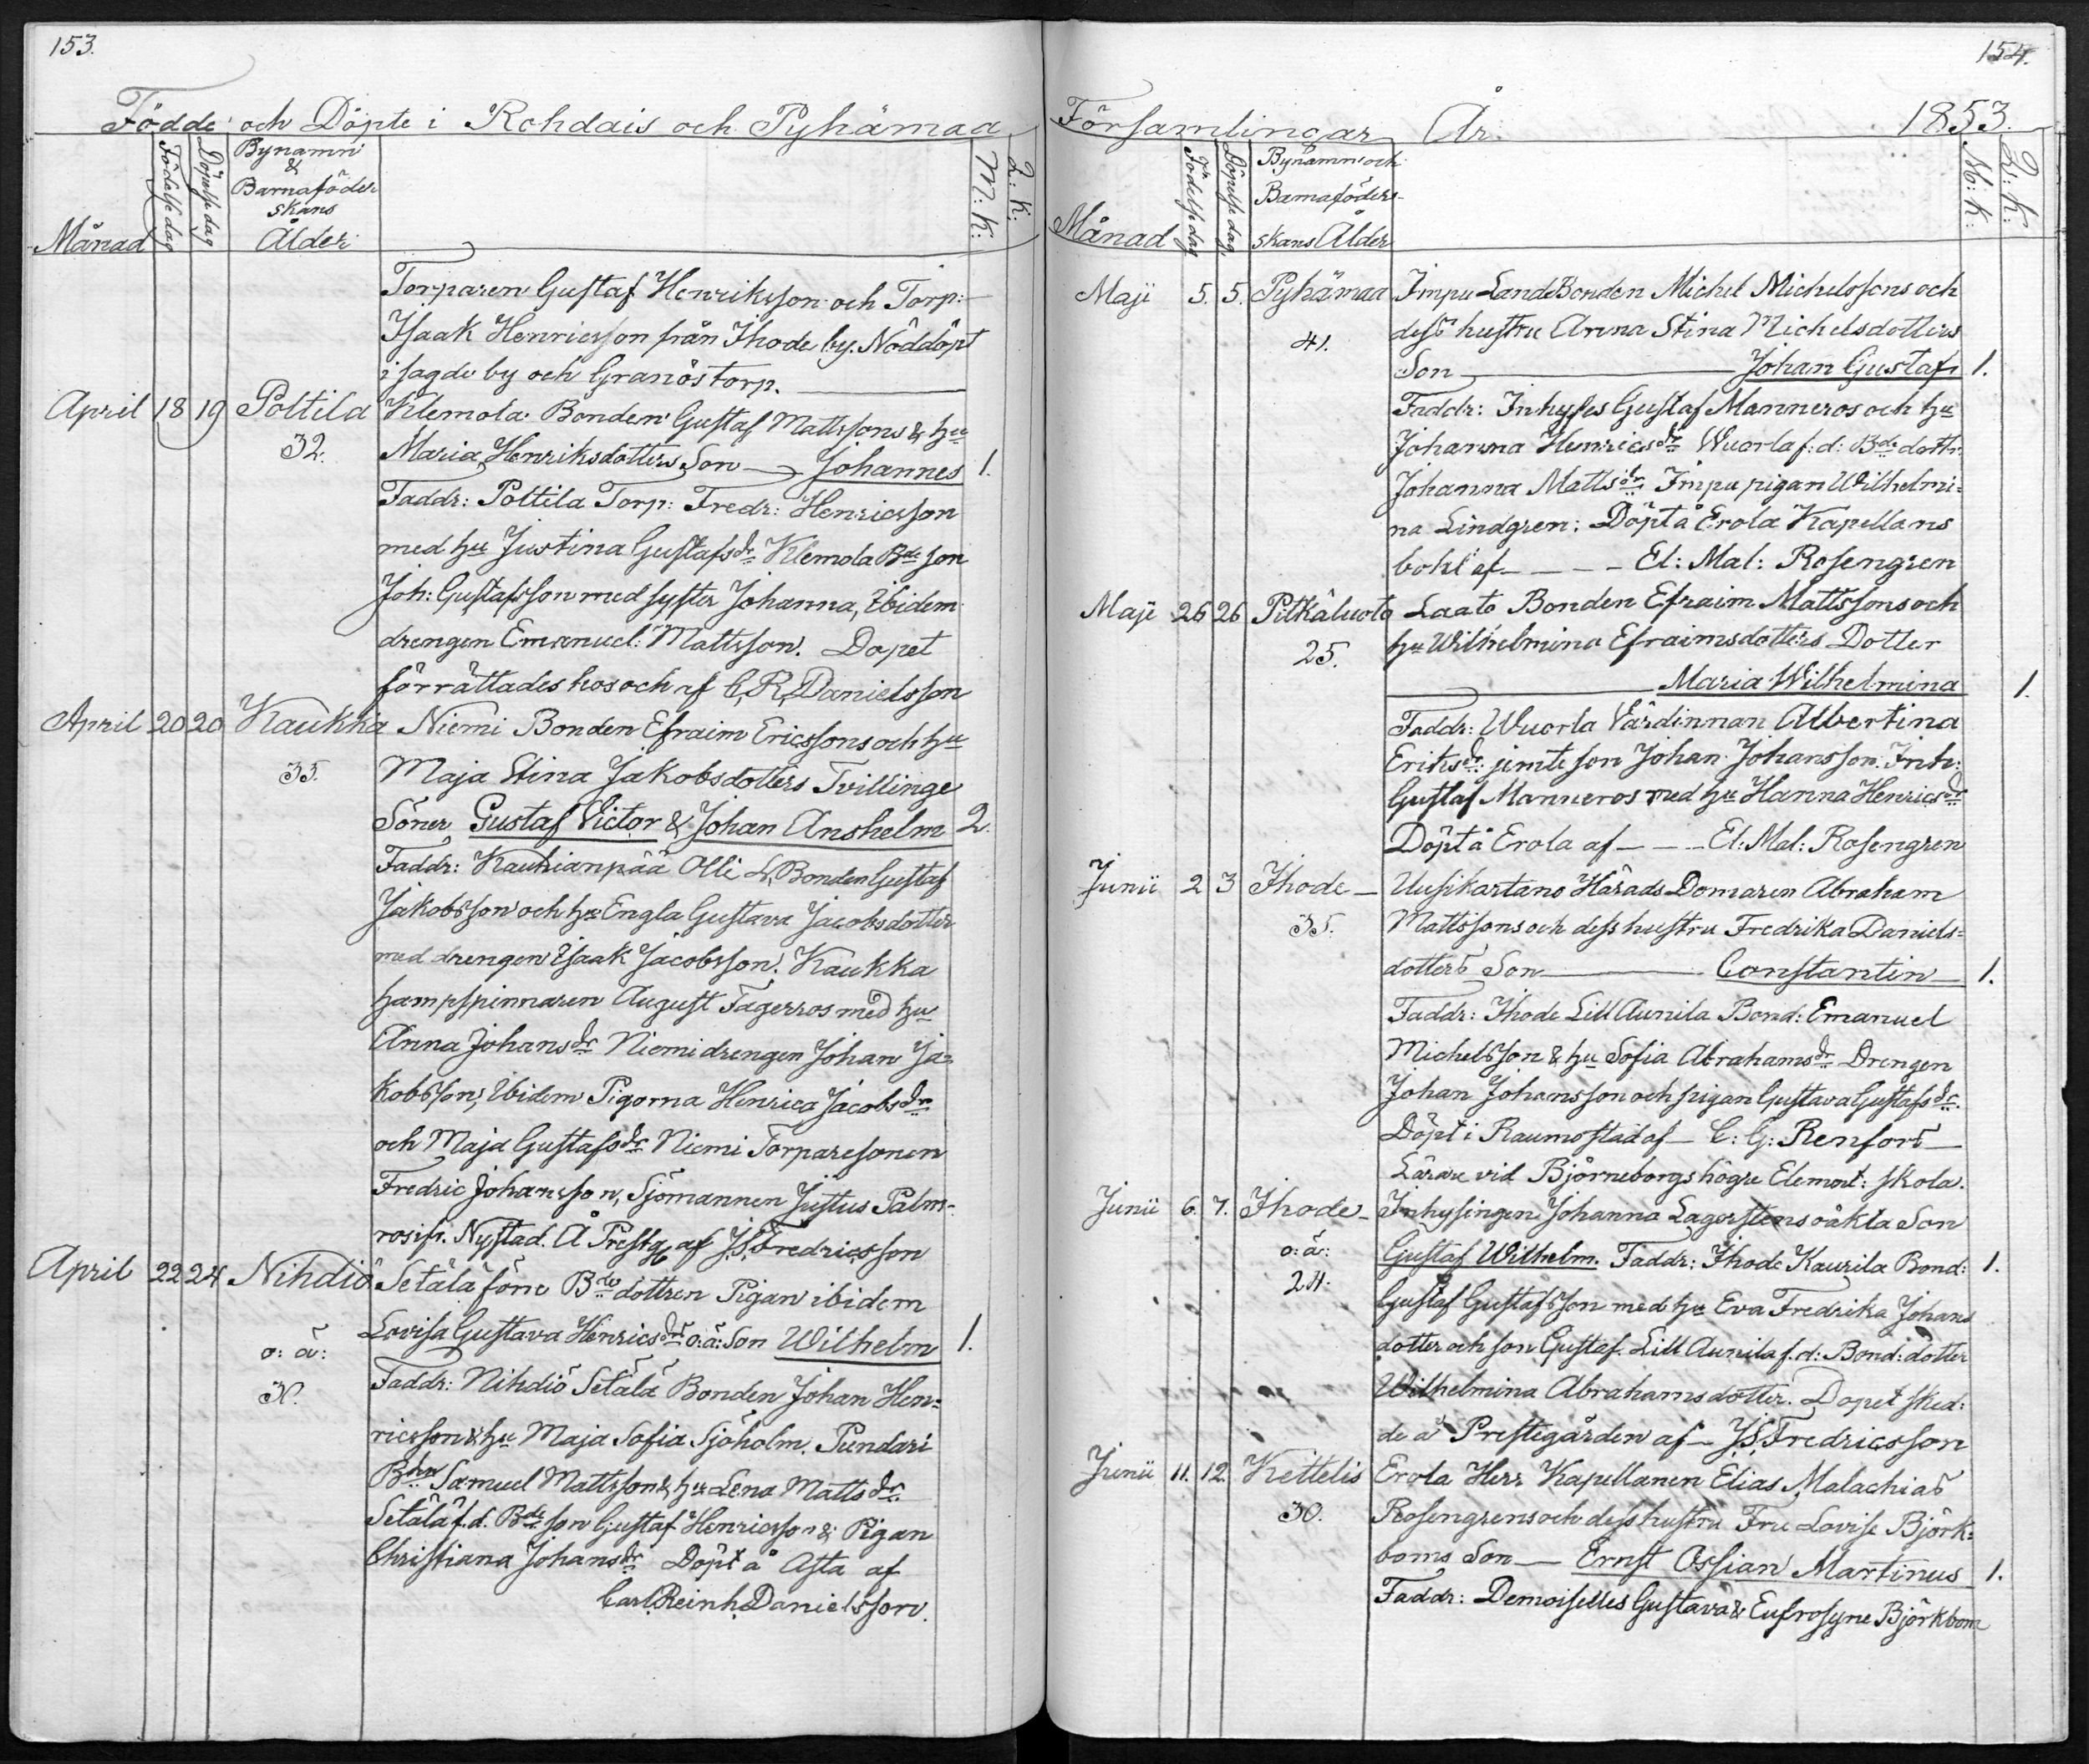 153.
Födde och Döpte i Rohdais och Pyhämaa
Månad
Födelse dag
Döpelse dag
Bynamn
&
Barnaföder
skans
Ålder
M: K:
Q: K:
Torparen Gustaf Henriksson och Torp:
Isaak Henricsson från Ihode by. Nöddöpt
i sagde by och Granöstorp.
April 18 19 Poltila Klemola Bonden Gustaf Mattssons & hu
32. Maria Henriksdotters Son Johannes 1.
Faddr: Poltila Torp: Fredr: Henricsson
med hu Justina Gustafsdr Klemola Bde son
Joh: Gustafsson med syster Johanna, Ibidem
drengen Emanuel Mattsson. Dopet
förrättades hos och af C, R, Danielsson
April 20 20 Kaukka Niemi Bonden Efraim Ericssons och hu
35. Maja Stina Jakobsdotters Tvillinge
Söner Gustaf Victor & Johan Anshelm 2.
Faddr: Kauhianpää Olli L, Bonden Gustaf
Jakobsson och hu Engla Gustava Jacobsdotter
med drengen Isaak Jacobsson. Kaukka
hampspinnaren August Fagerros med hu
Anna Johansdr Niemi drengen Johan Ja=
kobsson, Ibidem Pigorna Henrica Jacobsdr
och Maja Gustafsdr Niemi Torparesonen
Fredric Johansson, Sjömannen Justus Palm-
ros ifr. Nystad. Å Prestg af J.S. Fredricsson
April 22 24 Nihdiö Setälä före Bde dottren Pigan ibidem
o: ä: Lovisa Gustava Henricsdrs o:ä: Son Wilhelm 1.
Faddr: Nihdiö Setälä Bonden Johan Hen=
ricsson & hu Maja Sofia Sjöholm. Pundari
Bdn Samuel Mattsson & hu Lena Mattsdr
Setälä f.d. Bde son Gustaf Henricsson & Pigan
Christiana Johansdr Döpt å Asta af
Carl Reinh. Danielsson.
154.
Församlingar År 1853.
Månad
Födelse dag
Döpelse dag
Bynamn och
Barnaföders-
skans Ålder
M: K:
Q: K:
Maji 5. 5. Pyhämaa Impu LandeBonden Michel Michelssons och
41. dess hustru Anna Stina Michelsdotters
Son Johan Gustaf 1.
Faddr: Inhyses Gustaf Manneros och hu
Johanna Henricsdr Wuorla f: d: Bde dottr.
Johanna Mattsdr Impu pigan Wilhelmi=
na Lindgren: Döpt å Erola Kapellans
bohl af El: Mal: Rosengren
Maji 25 26 Pitkäluoto Laato Bonden Efraim Mattssons och
25. hu Wilhelmina Efraimsdotters Dotter
Maria Wilhelmina 1.
Faddr: Wuorla Värdinnan Albertina
Eriksdr: jemte son Johan Johansson. Inh:
Gustaf Manneros med hu Hanna Henricsdr
Döpt å Erola af El: Mal: Rosengren
Junii 2 3 Ihode Uusikartano Härads Domaren Abraham
35. Mattssons och dess hustru Fredrika Daniels=
dotters Son Constantin 1.
Faddr: Ihode Lill Aunila Bond: Emanuel
Michelsson & hu Sofia Abrahamsdr Drengen
Johan Johansson och pigan Gustava Gustafsdr.
Döpt i Raumo stad af C: G: Renfors
Lärare vid Björneborgs högre Element: skola.
Junii 6. 7. Ihode Inhysingen Johanna Lagerstens oäkta Son
o: ä: Gustaf Wilhelm. Faddr: Ihode Kaurila Bond: 1.
24. Gustaf Gustafsson med hu Eva Fredrika Johans
dotter och son Gustaf. Lill Aunila f.d: Bond: dotter
Wilhelmina Abrahamsdotter. Dopet sked:
de å Prestegården af J.S. Fredricsson
Junii 11. 12. Kettelis Erola Herr Kapellanen Elias Malachias
30. Rosengrens och dess hustru Fru Lovise Björk=
boms Son Ernst Ossian Martinus 1.
Faddr: Demoiselles Gustava & Eufrosyne Björkbom